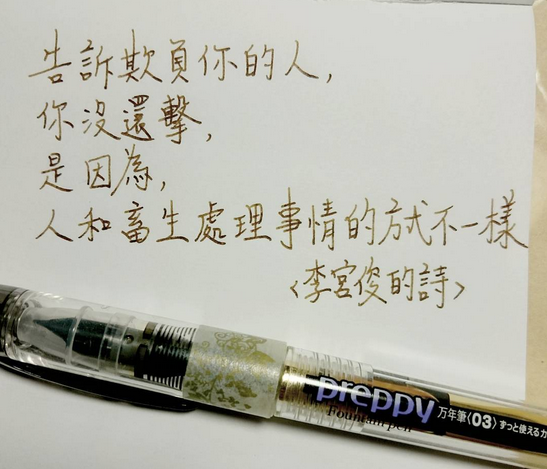 告訴欺負你的人,
你没還擊,
是因為,
人和畜生處理事情的方式不一樣
<李宮俊的詩>
preppy
Fountain pen
万年筆<03>ずっと使えるカ